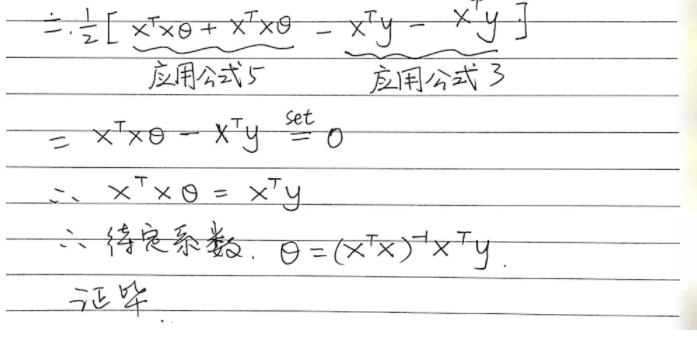 = 1/2 [ xᵀxθ + xᵀxθ - xᵀy - xᵀy ]
应用公式5 应用公式3
= xᵀxθ - xᵀy set= 0
∴ xᵀxθ = xᵀy
∴ 待定系数. θ = (xᵀx)⁻¹xᵀy.
证毕.